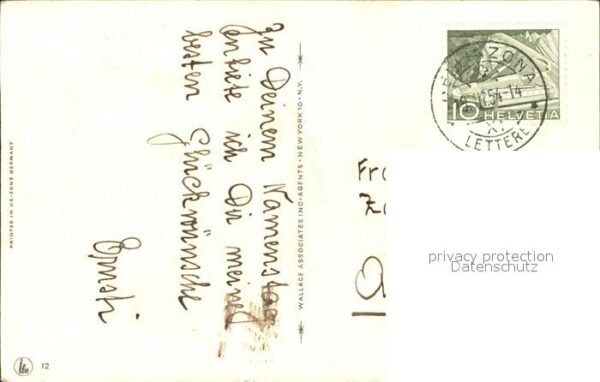 Zu Deinem Namenstag
entbiete ich Dir meine
besten Glückwünsche
PRINTED IN US-ZONE GERMANY
12
WALLACE ASSOCIATES INC·AGENTS · NEW YORK 10·N.Y.
10
HELVETIA
LETTERE
Fr
privacy protection
Datenschutz